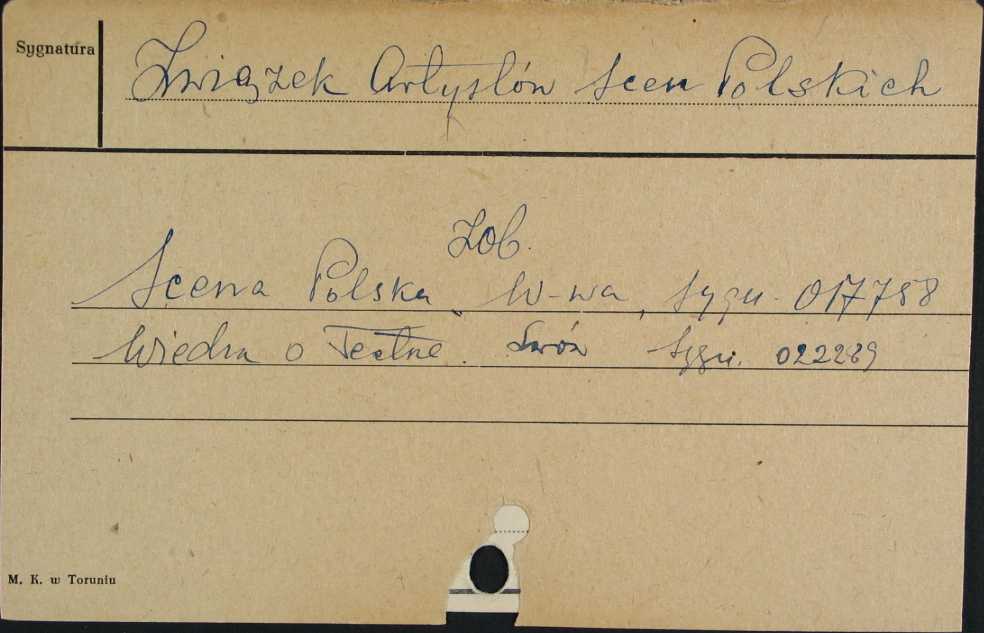 Sygnatura
Związek Artystów Scen Polskich
Zob.
Scena Polska, W-wa, sygn. 017758
Wiedza o Teatrze. Lwów sygn. 022289
M. K. w Toruniu